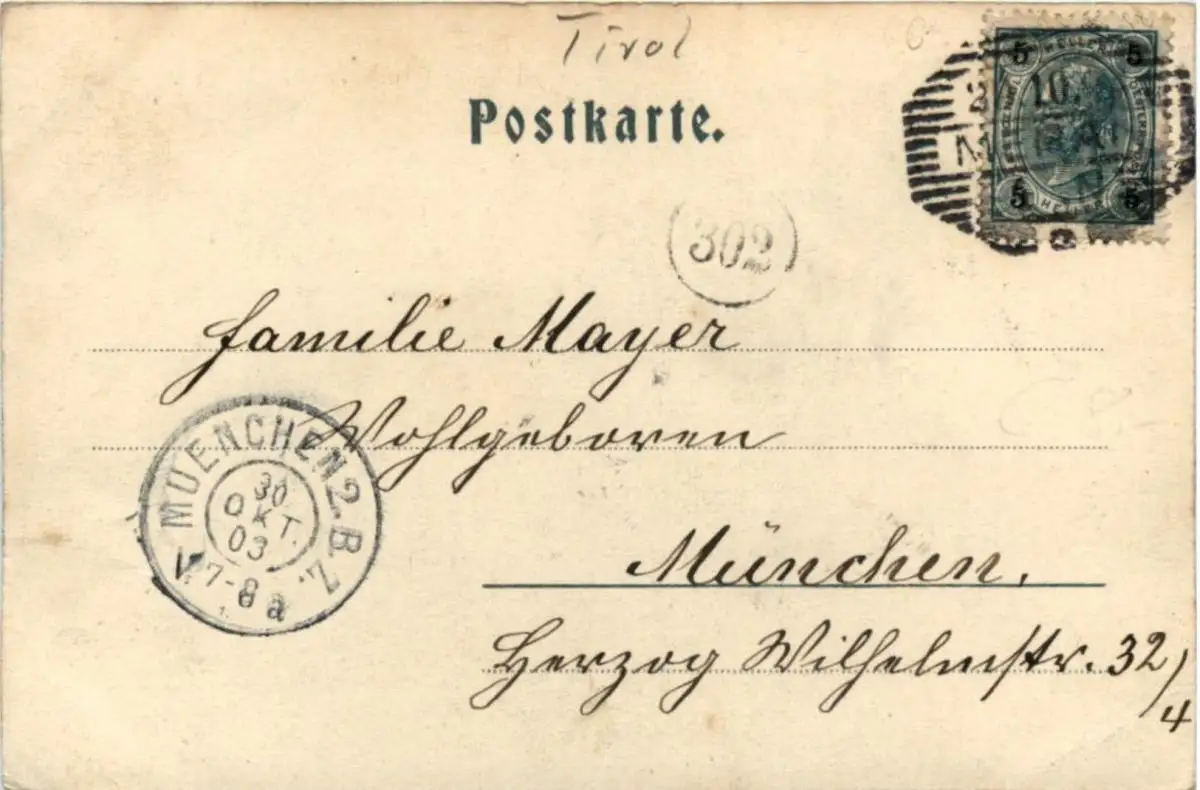 Tirol
Postkarte.
5 5
5 5
302
Familie Mayer
Wohlgeboren
MUENCHEN 2. B. Z.
30
OKT.
03
V. 7-8 a
München,
Herzog Wilhelmstr. 32/4